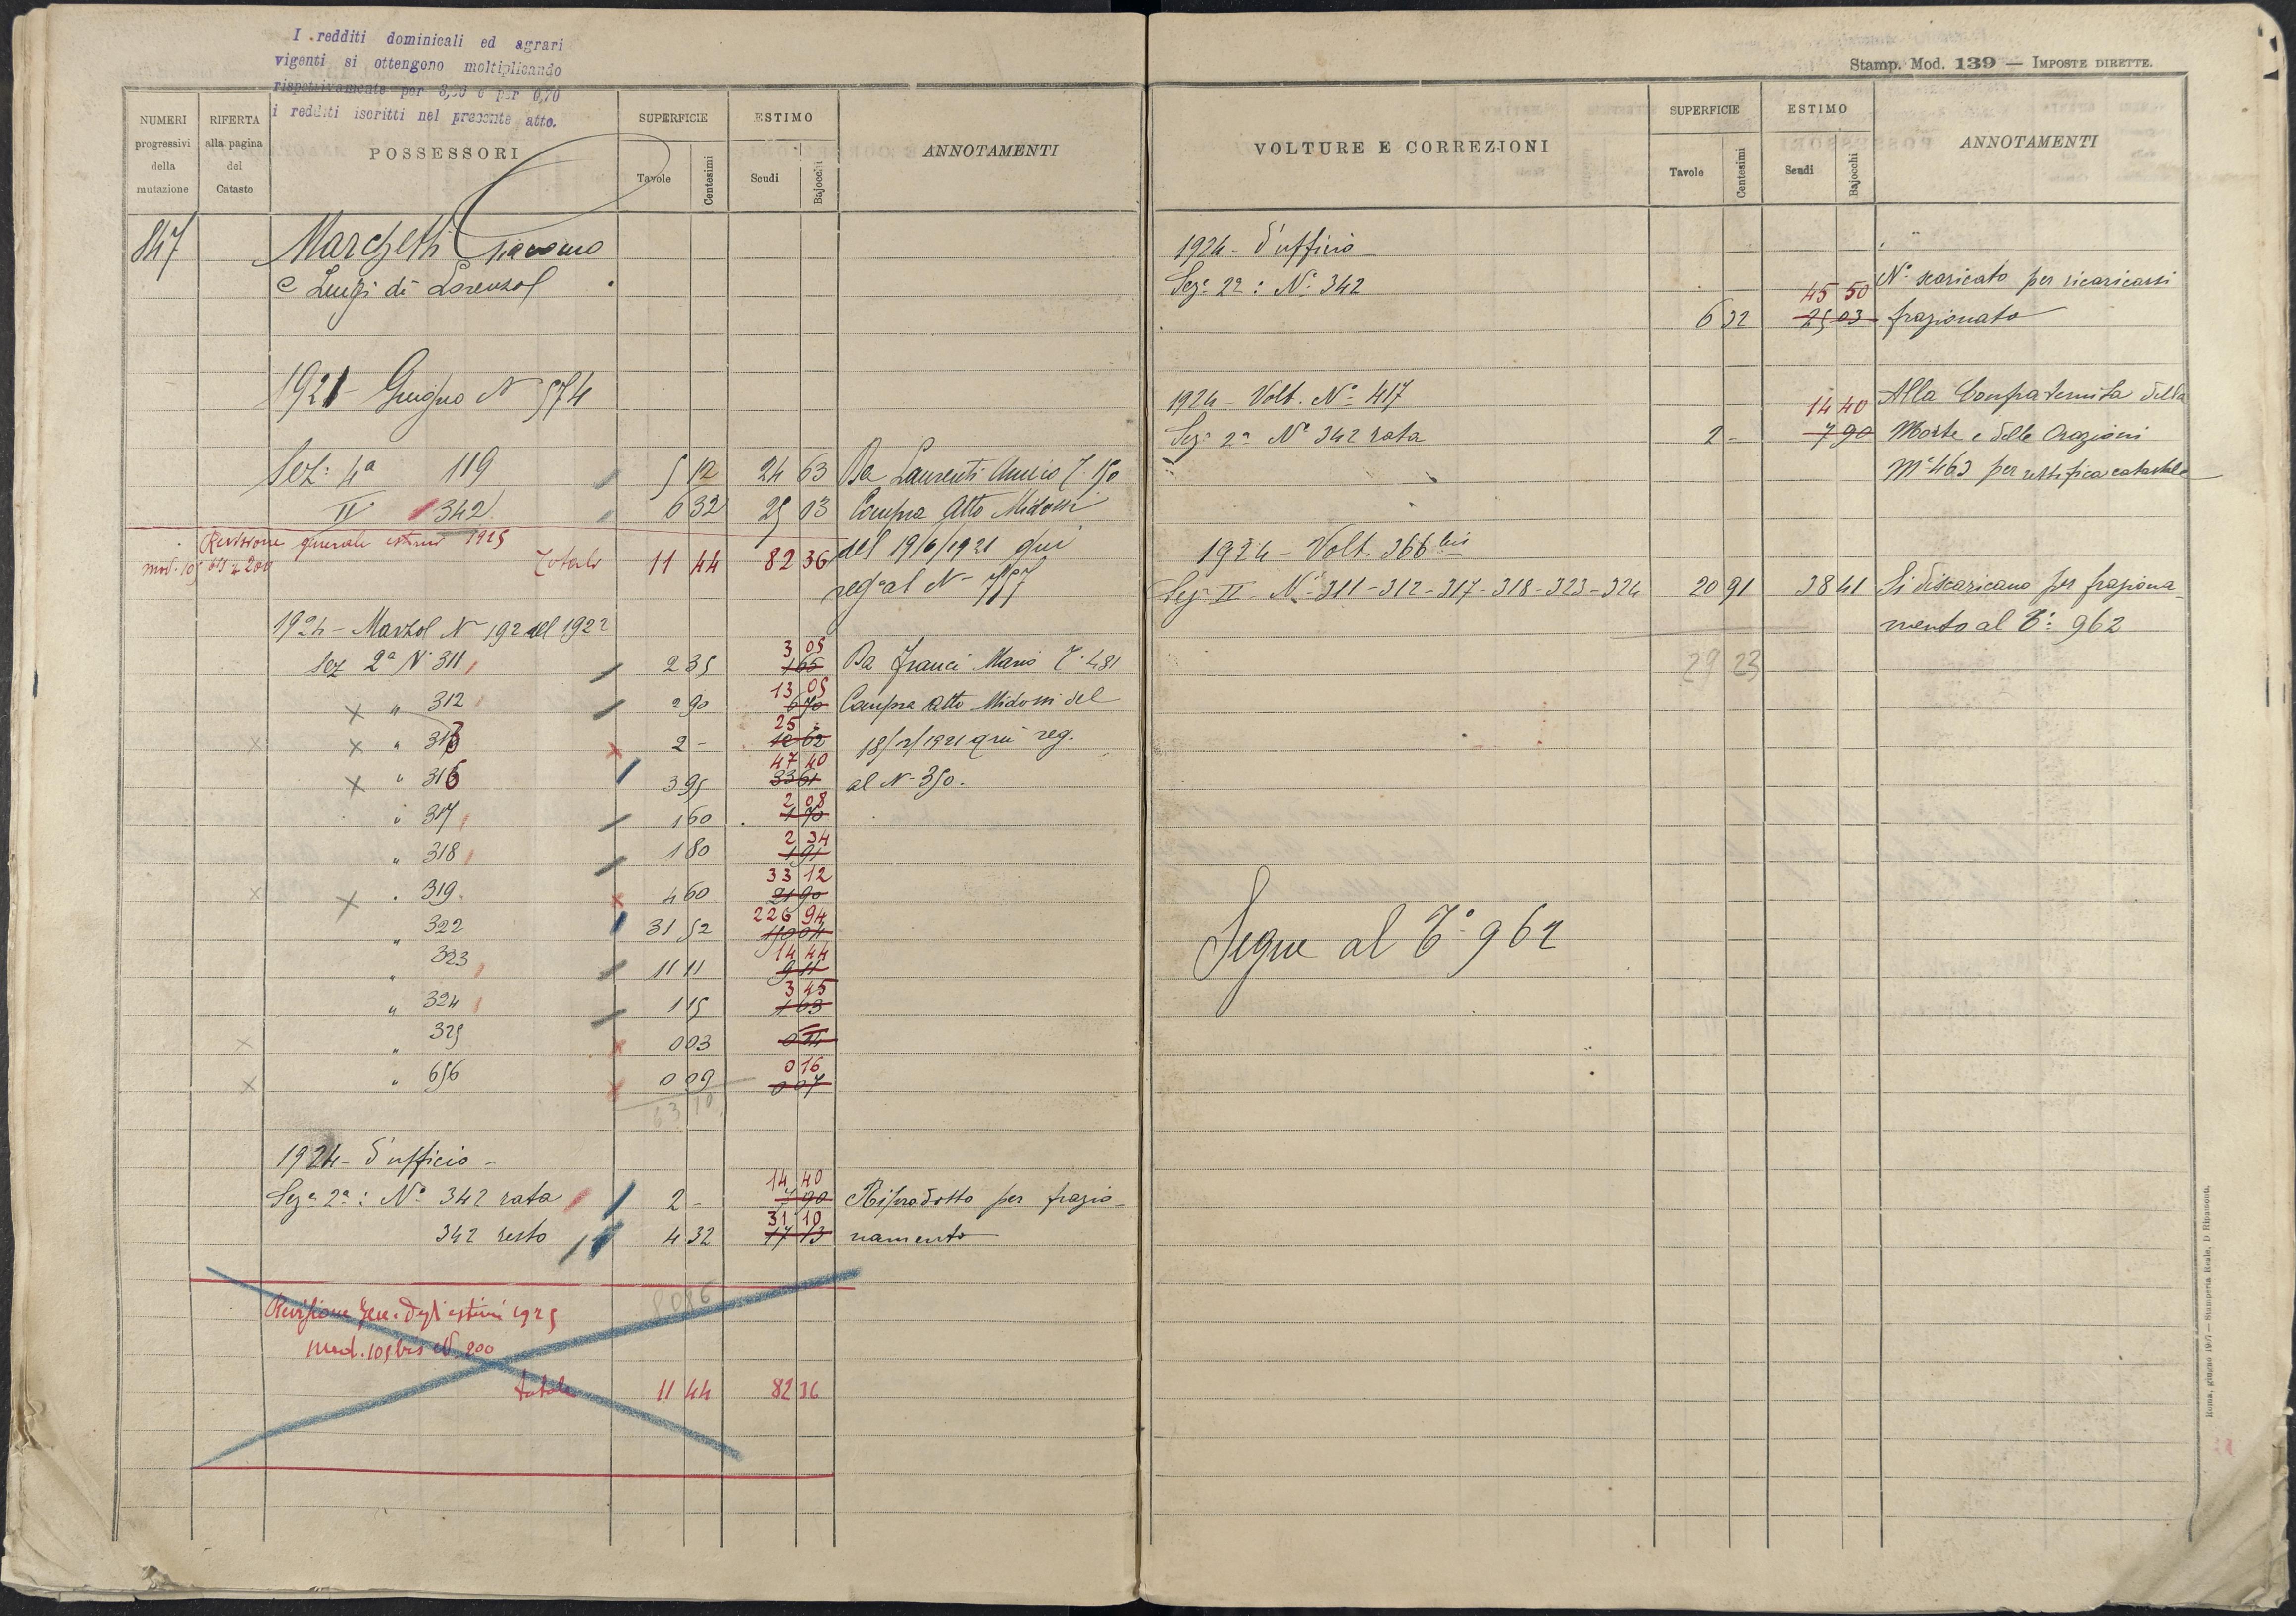 I redditi dominicali ed agrari
vigenti si ottengono moltiplicando
rispettivamente per 3,96 e per 0,70
i redditi iscritti nel presente atto.
NUMERI progressivi della mutazione
RIFERTA alla pagina del Catasto
POSSESSORI
SUPERFICIE
Tavole Centesimi
ESTIMO
Scudi Bajocchi
ANNOTAMENTI
847 Marchetti Giacomo
e Luigi di Lorenzo
1921 - Giugno N 574
Sez: 4ª 119 5 12 24 63 Da Laurenti
II 342 6 32 25 03 Compra Atto Midossi
Revisione generale estimi 1925
mod. 105 bis n 200 Totale 11 44 82 36 del 19/6/1921 qui
reg al N- 757
1924 - Marzo N 192 del 1922
Sez 2ª N. 311 2 35 3 05 1 65 Da Franci Mario T. 481
x " 312 2 90 13 05 6 70 Compra atto Midossi del
x x " 313 x 2 - 25 - 12 62 18/12/1921 qui reg.
x " 316 3 95 47 40 33 61 al N- 350.
" 317 1 60 2 08 1 70
" 318 1 80 2 34 1 91
x x " 319 x 4 60 33 12 21 90
" 322 31 52 226 94 150 04
" 323 11 11 14 44 9 11
" 324 1 15 3 45 1 63
x " 325 x 0 03
x " 656 x 0 09 0 16 0 07
63 10
1924 - d'ufficio -
Sez. 2ª: N° 342 rata 2 - 14 40 7 90 Riprodotto per frazio-
342 resto 4 32 31 10 17 13 namento
80 86
Revisione Gen. degli estimi 1925
mod. 105 bis N. 200
totale 11 44 82 36
Stamp. Mod. 139 — IMPOSTE DIRETTE.
VOLTURE E CORREZIONI
SUPERFICIE
Tavole Centesimi
ESTIMO
Scudi Bajocchi
ANNOTAMENTI
1924 - d'ufficio
Sez. 2ª: N° 342 45 50 N° scaricato per ricaricarsi
6 32 25 03 frazionato
1924 - Volt. N° 417 14 40 Alla Confraternita della
Sez. 2ª N° 342 rata 2 - 7 90 Morte e delle Orazioni
M° 463 per rettifica catastale
1924 - Volt. 366 bis
Sez. II - N° 311-312-317-318-323-324 20 91 38 41 Si discaricano per fraziona-
mento al T° 962
29 23
Segue al T° 962
Roma, giugno 1907 — Stamperia Reale, D Ripamonti.